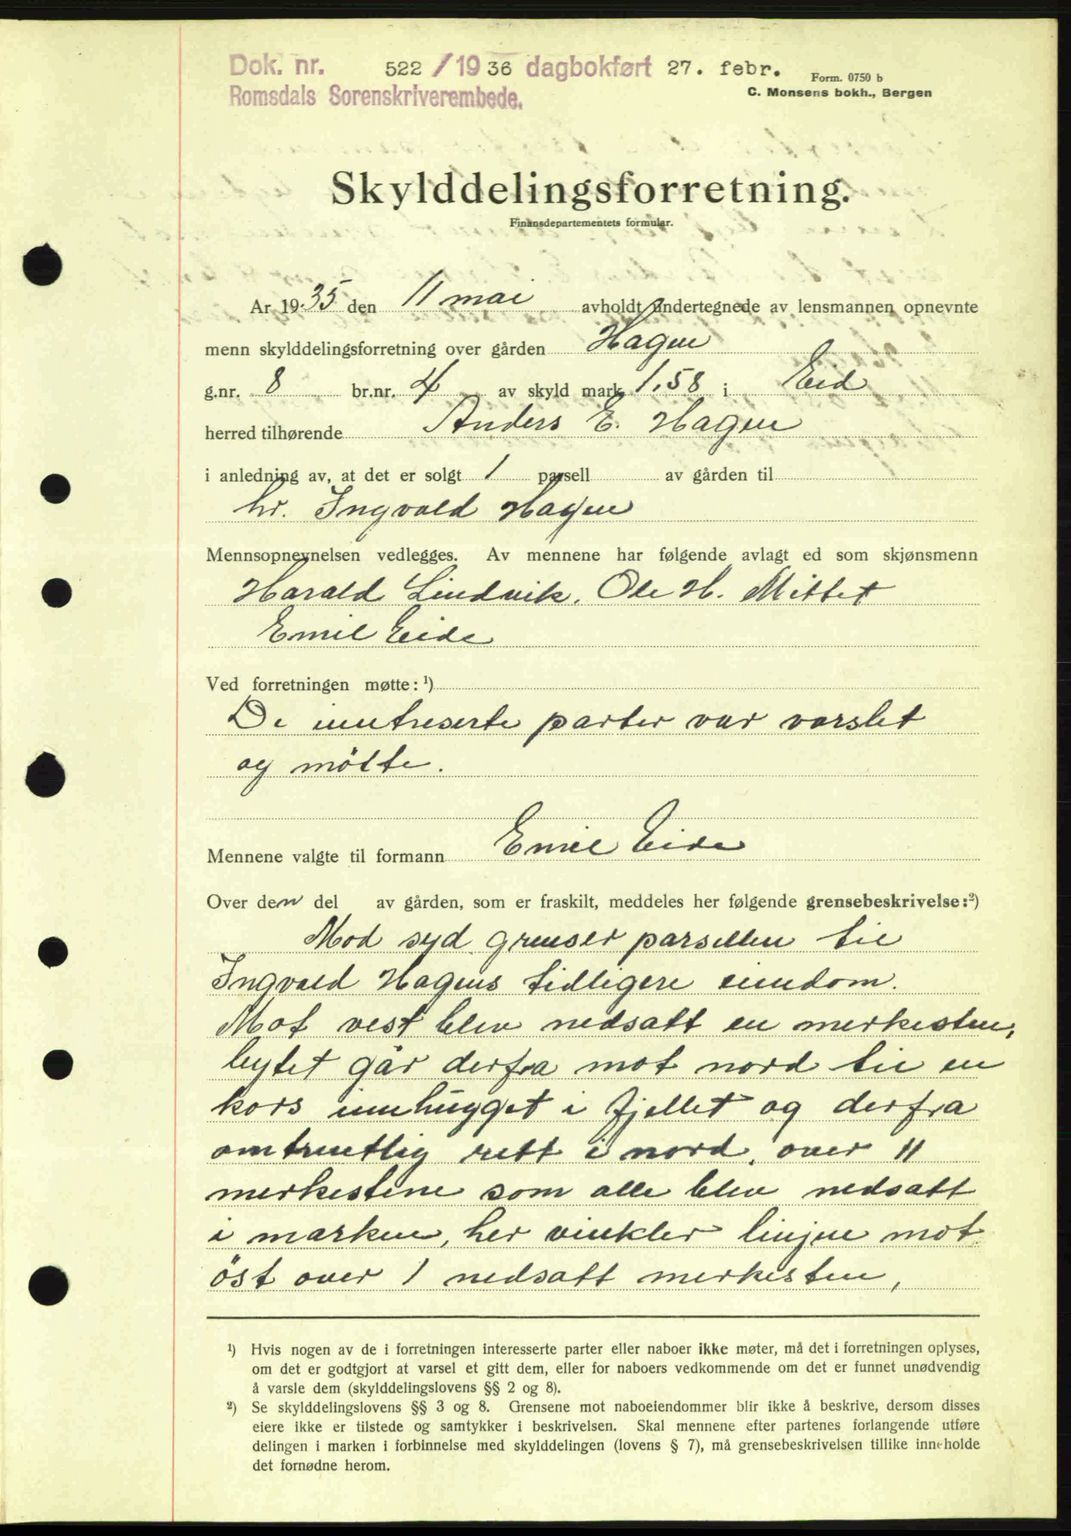 Dok. nr. 522 / 1936 dagbokført 27. febr.
Romsdals Sorenskriverembede.
Form. 0750 b
C. Monsens bokh., Bergen
Skylddelingsforretning.
Finansdepartementets formular.
Ar 19 35 den 11 mai avholdt undertegnede av lensmannen opnevnte
menn skylddelingsforretning over gården Hagen
g.nr. 8 br.nr. 4 av skyld mark 1.58 i Eid
herred tilhørende Anders E. Hagen
i anledning av, at det er solgt 1 parsell av gården til
hr. Ingvald Hagen
Mennsopnevnelsen vedlegges. Av mennene har følgende avlagt ed som skjønsmenn
Harald Lindvik. Ole H. Mittet
Emil Eide
Ved forretningen møtte: ¹)
De inntreserte parter var varslet
og mötte.
Mennene valgte til formann Emil Eide
Over den del av gården, som er fraskilt, meddeles her følgende grensebeskrivelse: ²)
Mod syd grenser parsellen til
Ingvald Hagens tidligere eiendom.
Mot vest blev nedsatt en merkesten,
bytet går derfra mot nord til en
kors innhugget i fjellet og derfra
omtrentlig rett i nord, over 11
merkestene som alle blev nedsatt
i marken, her vinkler linjen mot
öst over 1 nedsatt merkesten,
¹) Hvis nogen av de i forretningen interesserte parter eller naboer ikke møter, må det i forretningen oplyses,
om det er godtgjort at varsel et gitt dem, eller for naboers vedkommende om det er funnet unødvendig
å varsle dem (skylddelingslovens §§ 2 og 8).
²) Se skylddelingslovens §§ 3 og 8. Grensene mot naboeiendommer blir ikke å beskrive, dersom disses
eiere ikke er tilstede og samtykker i beskrivelsen. Skal mennene efter partenes forlangende utføre
delingen i marken i forbinnelse med skylddelingen (lovens § 7), må grensebeskrivelsen tillike inneholde
det fornødne herom.